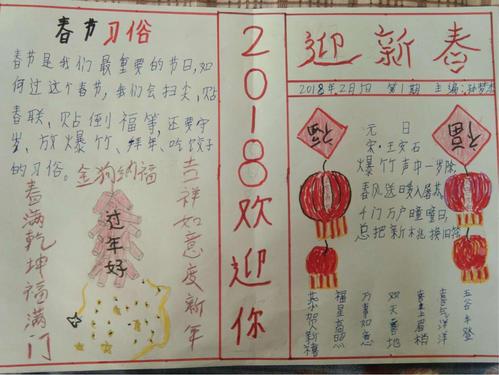 春节习俗
春节是我们最重要的节日,如
何过这个春节,我们会扫尘,贴
春联、贴倒福等,还要守
岁、放爆竹、拜年、吃饺子
的习俗。
金狗纳福
吉祥如意度新年
春满乾坤福满门
过年好
2018欢迎你
迎新春
2018年2月5日 第1期 主编:孙梦
福
福
元日
宋·王安石
爆竹声中一岁除
春风送暖入屠苏
千门万户曈曈日,
总把新桃换旧符
恭贺新禧
福星高照
万事如意
欢天喜地
喜上眉梢
喜气洋洋
五谷丰登